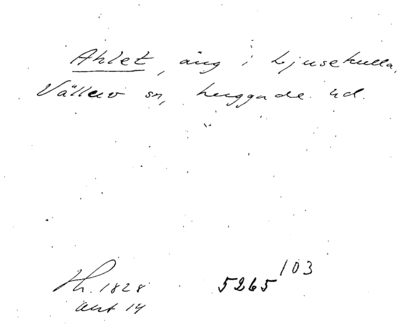 Ahlet, äng i Ljusekulla,
Välluv sn, huggade ud.
Hh. 1828
akt 14
5265 103